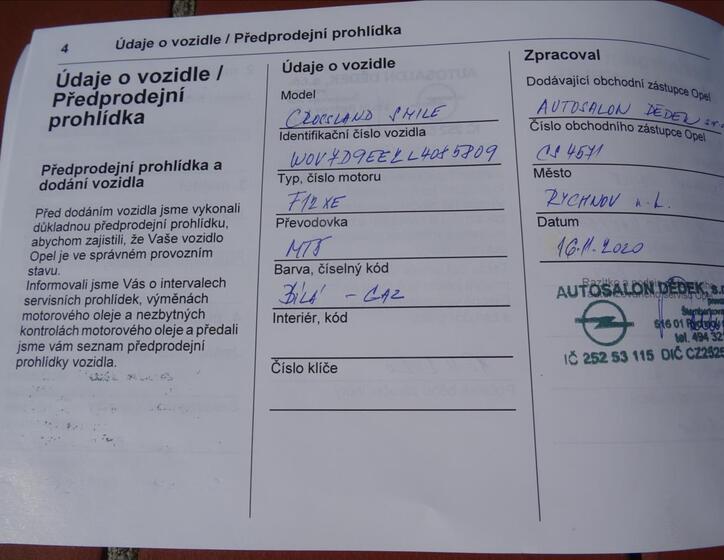 4
Údaje o vozidle / Předprodejní prohlídka
Údaje o vozidle /
Předprodejní
prohlídka
Předprodejní prohlídka a
dodání vozidla
Před dodáním vozidla jsme vykonali
důkladnou předprodejní prohlídku,
abychom zajistili, že Vaše vozidlo
Opel je ve správném provozním
stavu.
Informovali jsme Vás o intervalech
servisních prohlídek, výměnách
motorového oleje a nezbytných
kontrolách motorového oleje a předali
jsme vám seznam předprodejní
prohlídky vozidla.
Údaje o vozidle
Model
CROSSLAND SMILE
Identifikační číslo vozidla
Typ, číslo motoru
F12XE
Převodovka
MT5
Barva, číselný kód
BÍLÁ - GAZ
Interiér, kód
Číslo klíče
Zpracoval
Dodávající obchodní zástupce Opel
AUTOSALON DĚDEK s.r.
Číslo obchodního zástupce Opel
CS 4571
Město
RYCHNOV n. K.
Datum
16.11.2020
AUTOSALON DĚDEK, s.r
516 01
tel. 494 32
IČ 252 53 115 DIČ CZ2525